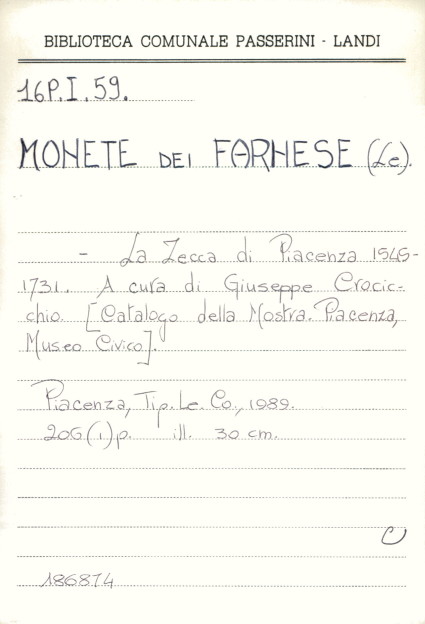 BIBLIOTECA COMUNALE PASSERINI - LANDI
16P.I.59.
MONETE DEI FARNESE (Le).
- La Zecca di Piacenza 1545-
1731. A cura di Giuseppe Crocic-
chio. [Catalogo della Mostra. Piacenza,
Museo Civico].
Piacenza, Tip. Le. Co., 1989.
206(1)p. ill. 30 cm.
C
186874